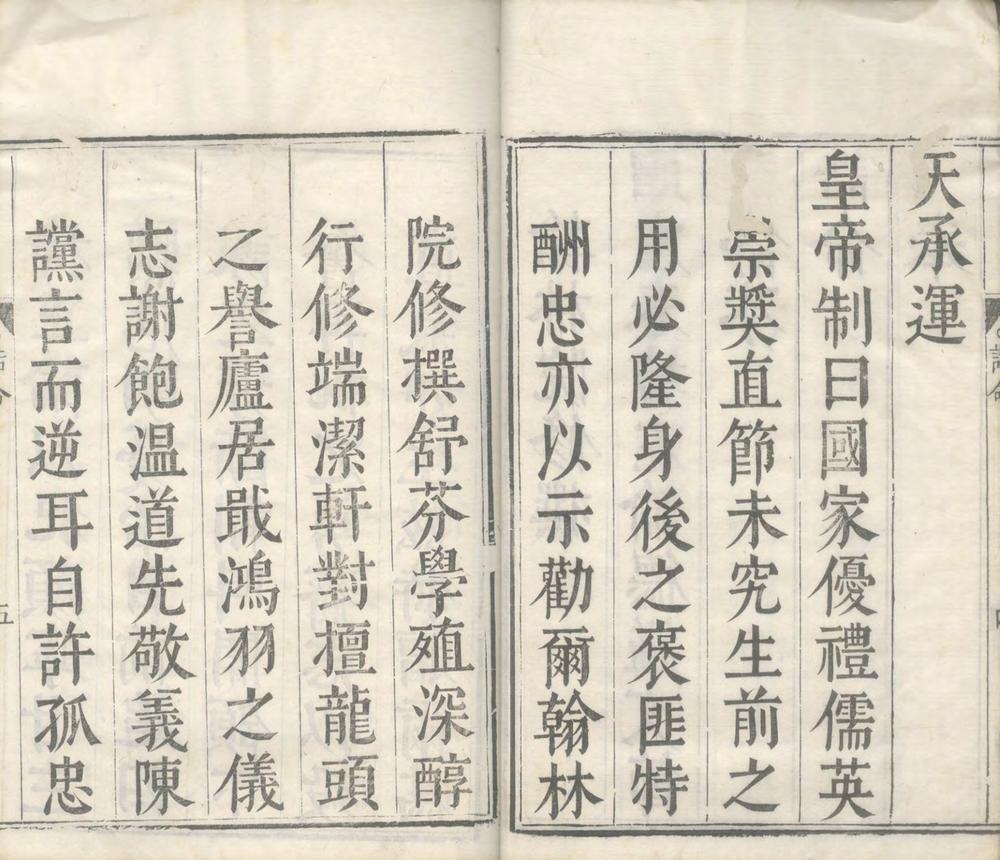 天承運
皇帝制曰國家優禮儒英
崇獎直節未究生前之
用必隆身後之褒匪特
酬忠亦以示勸爾翰林
院修撰舒芬學殖深醇
行修端潔軒對擅龍頭
之譽廬居戢鴻羽之儀
志謝飽温道先敬義陳
讜言而逆耳自許孤忠
五